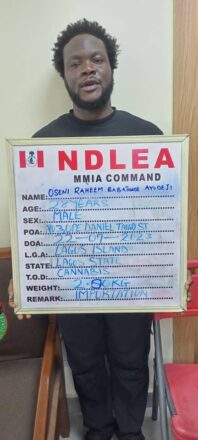 NDLEA
MMIA COMMAND
NAME: OSENI RAHEEM BABATUNDE AYODEJI
AGE: 28 YEARS
SEX: MALE
POA: DANIEL TAIWO ST
DOA: 22-09-2025
L.G.A: LAGOS ISLAND
STATE: LAGOS STATE
T.O.D: CANNABIS
WEIGHT: KG
REMARK: IMPORTATION